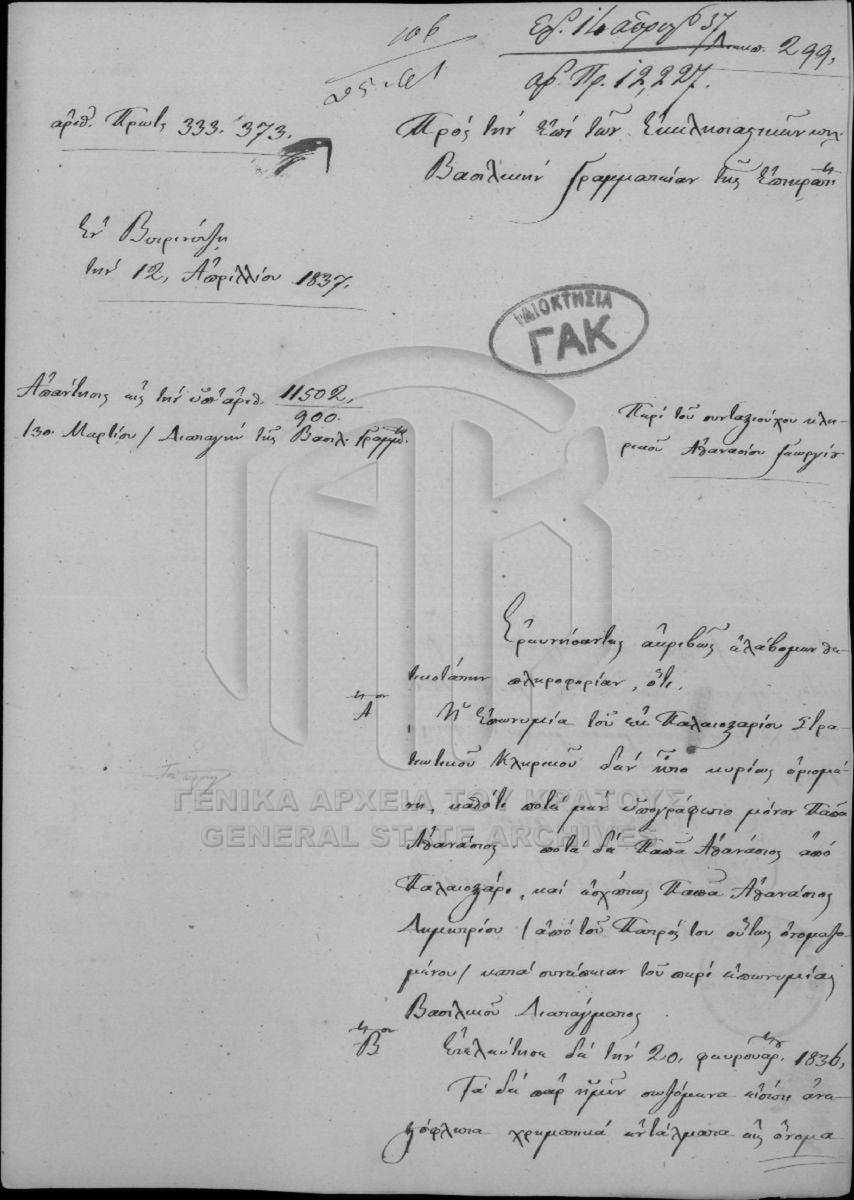 106
Ἐλ. 14 ἀπριλ 37
Διεκπ. 299.
ἀρ. Πρ. 12,227.
ἀριθ. Πρωτ. 333. 373.
Πρὸς τὴν ἐπὶ τῶν Ἐκκλησιαστικῶν κτλ
Βασιλικὴν Γραμματείαν τῆς Ἐπικρατ
Ἐν Βιτρινίτζῃ
τὴν 12, Ἀπριλλίου 1837.
ΙΔΙΟΚΤΗΣΙΑ
ΓΑΚ
Ἀπάντησις εἰς τὴν ὑπ' ἀριθ. 11502,
900.
13ην Μαρτίου / Διαταγὴν τῆς Βασιλ. Γραμμ.
Περὶ τοῦ συνταξιούχου κλη-
ρικοῦ Ἀθανασίου Γεωργίου
Ἐρευνήσαντες ἀκριβῶς ἐλάβομεν θε-
τικοτάτην πληροφορίαν, ὅτι.
Α Ἡ ἐπωνυμία τοῦ ἐκ Παλαιοξαρίου Στρα-
τιωτικοῦ Κληρικοῦ δὲν ἦτο κυρίως ὁρισμέ-
νη, καθότι ποτὲ μὲν ὑπογράφετο μόνον Παπᾶ
Ἀθανάσιος ποτὲ δὲ Παπᾶ Ἀθανάσιος ἀπὸ
Παλαιοξάρι, καὶ ἐσχάτως Παπᾶ Ἀθανάσιος
Δημητρίου / ἀπὸ τοῦ Πατρός του οὕτως ὀνομαζο-
μένου / κατὰ συνέπειαν τοῦ περὶ ἐπωνυμίας
Βασιλικοῦ Διατάγματος.
Β Ἐτελεύτησε δὲ τὴν 20, φευρουαρ. 1836,
Τὰ δὲ παρ' ἡμῖν σωζόμενα εἰσέτι ἀνε-
ξόφλητα χρηματικὰ ἐντάλματα εἰς ὄνομα
ΓΕΝΙΚΑ ΑΡΧΕΙΑ ΤΟΥ ΚΡΑΤΟΥΣ
GENERAL STATE ARCHIVES